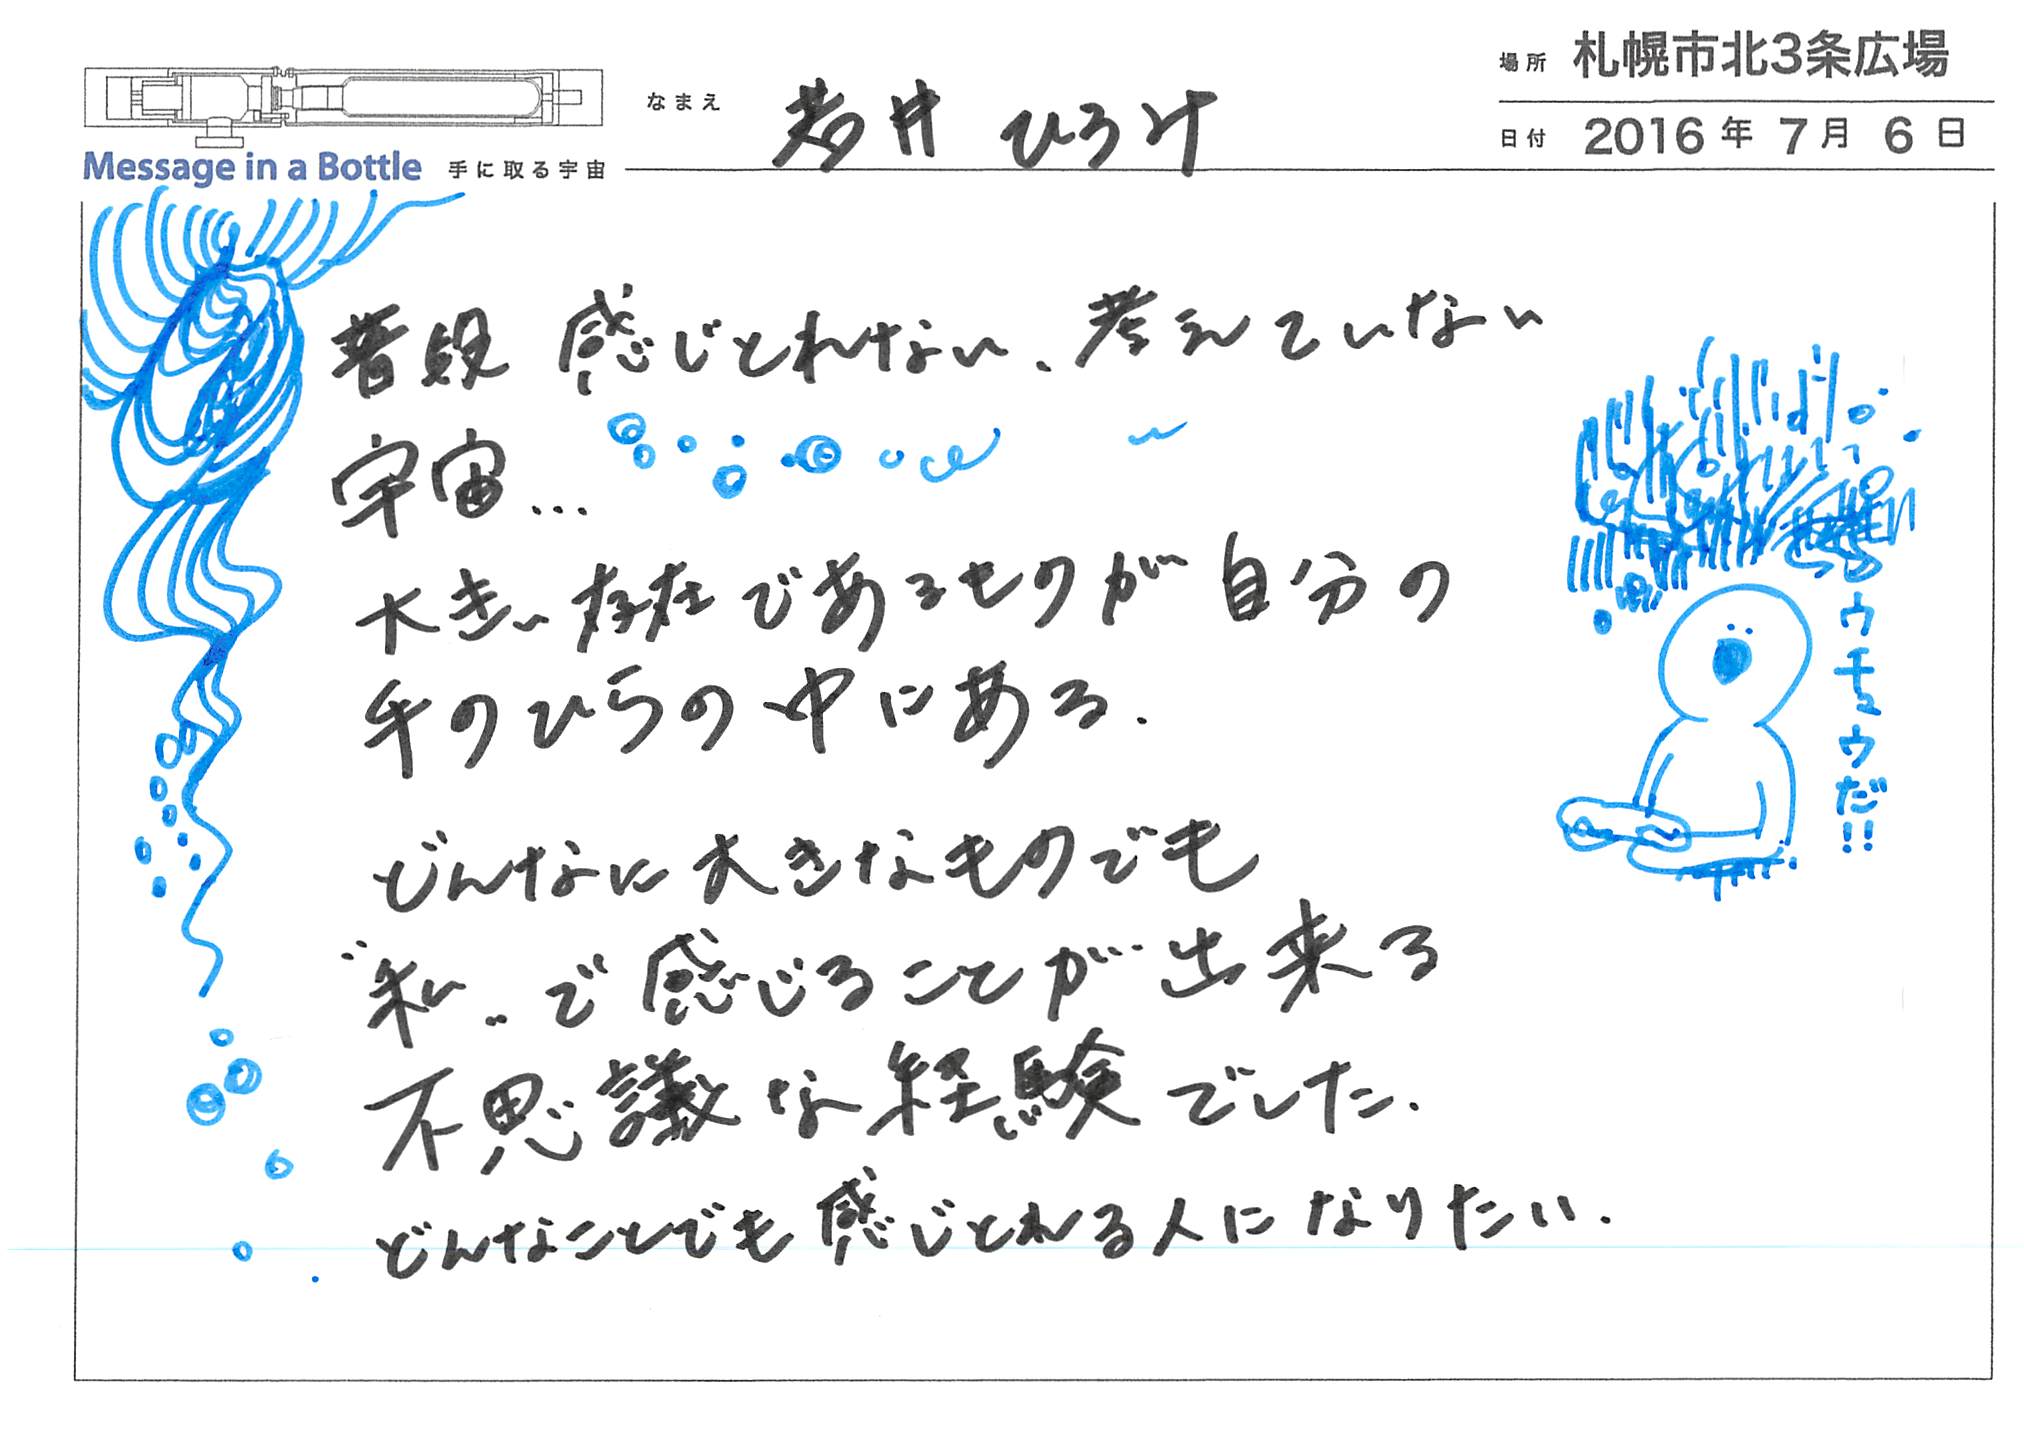 場所 札幌市北3条広場
なまえ 若井 ひろみ
日付 2016年 7月 6日
Message in a Bottle 手に取る宇宙
普段 感じとれない、考えていない
宇宙…
大きい存在であるものが自分の
手のひらの中にある.
どんなに大きなものでも
"私"で感じることが出来る
不思議な経験でした.
どんなことでも感じとれる人になりたい.
ウチュウだ!!